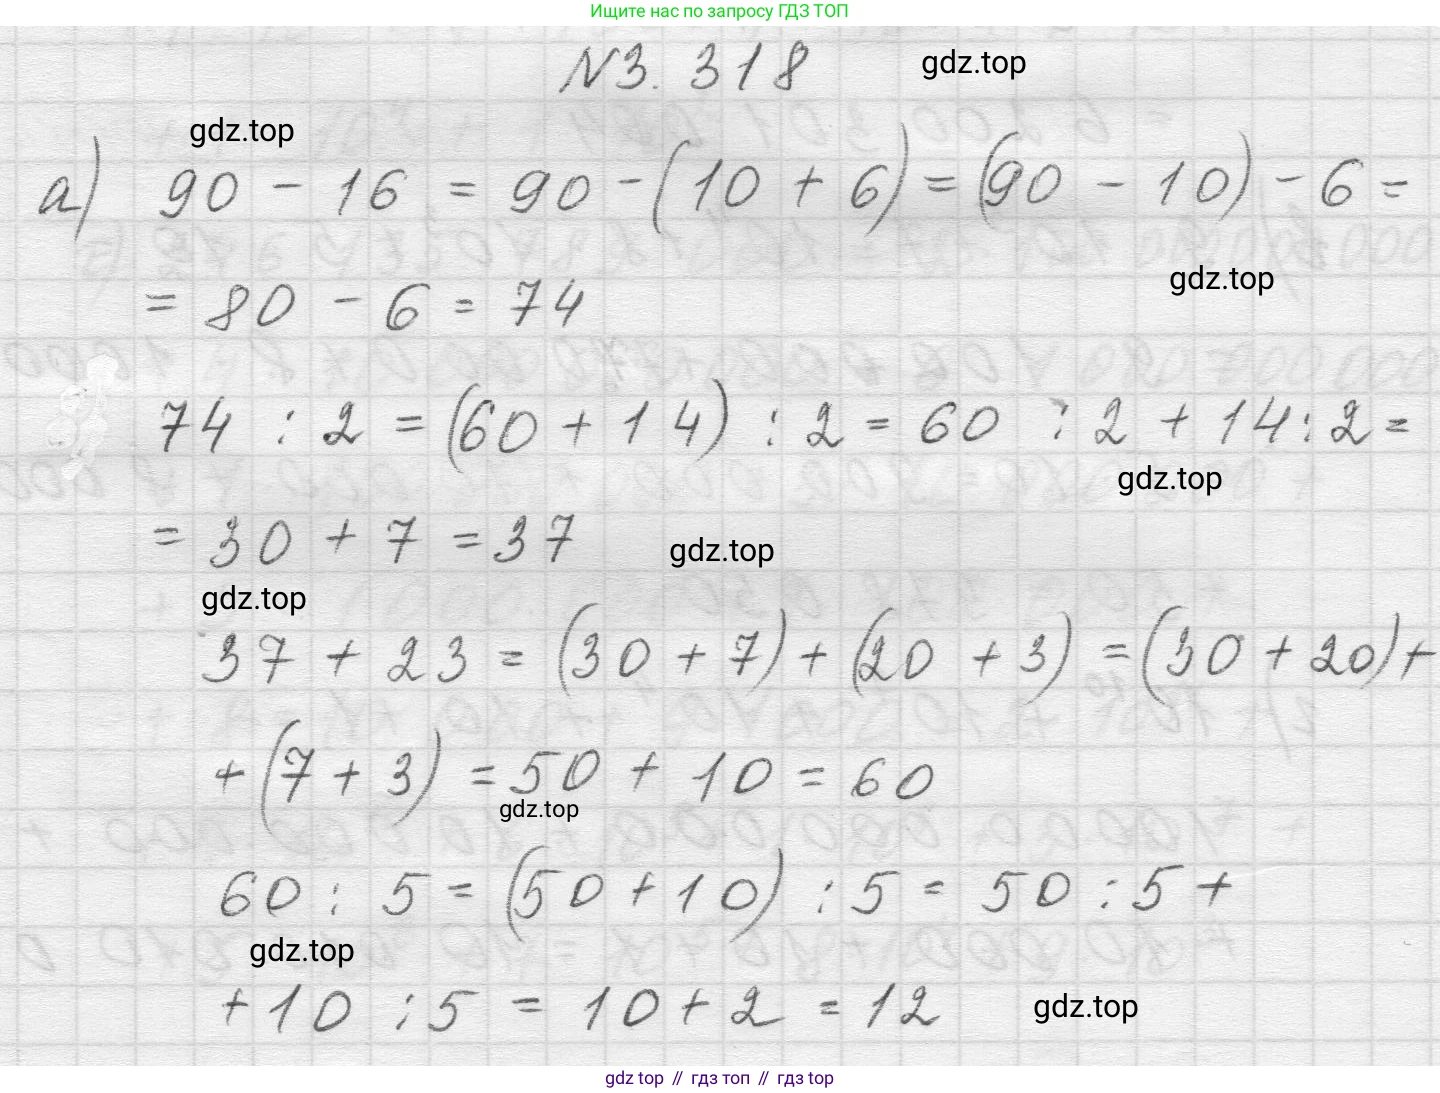 Ищите нас по запросу ГДЗ ТОП
№3. 318
gdz.top
gdz.top
а) 90 - 16 = 90 - (10 + 6) = (90 - 10) - 6 =
gdz.top
= 80 - 6 = 74
74 : 2 = (60 + 14) : 2 = 60 : 2 + 14 : 2 =
gdz.top
= 30 + 7 = 37
gdz.top
gdz.top
37 + 23 = (30 + 7) + (20 + 3) = (30 + 20) +
+ (7 + 3) = 50 + 10 = 60
gdz.top
60 : 5 = (50 + 10) : 5 = 50 : 5 +
gdz.top
+ 10 : 5 = 10 + 2 = 12
gdz.top
gdz top // гдз топ // gdz top